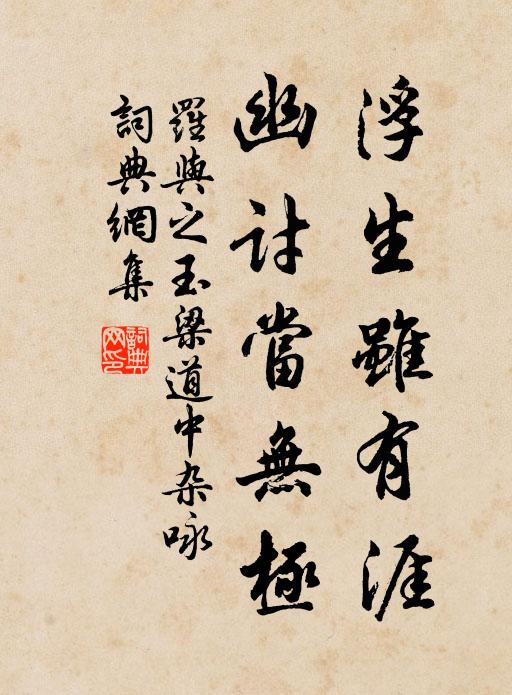 浮生雖有涯
幽討當無極
羅與之玉梁道中杂咏
詞典網集
詞典網印